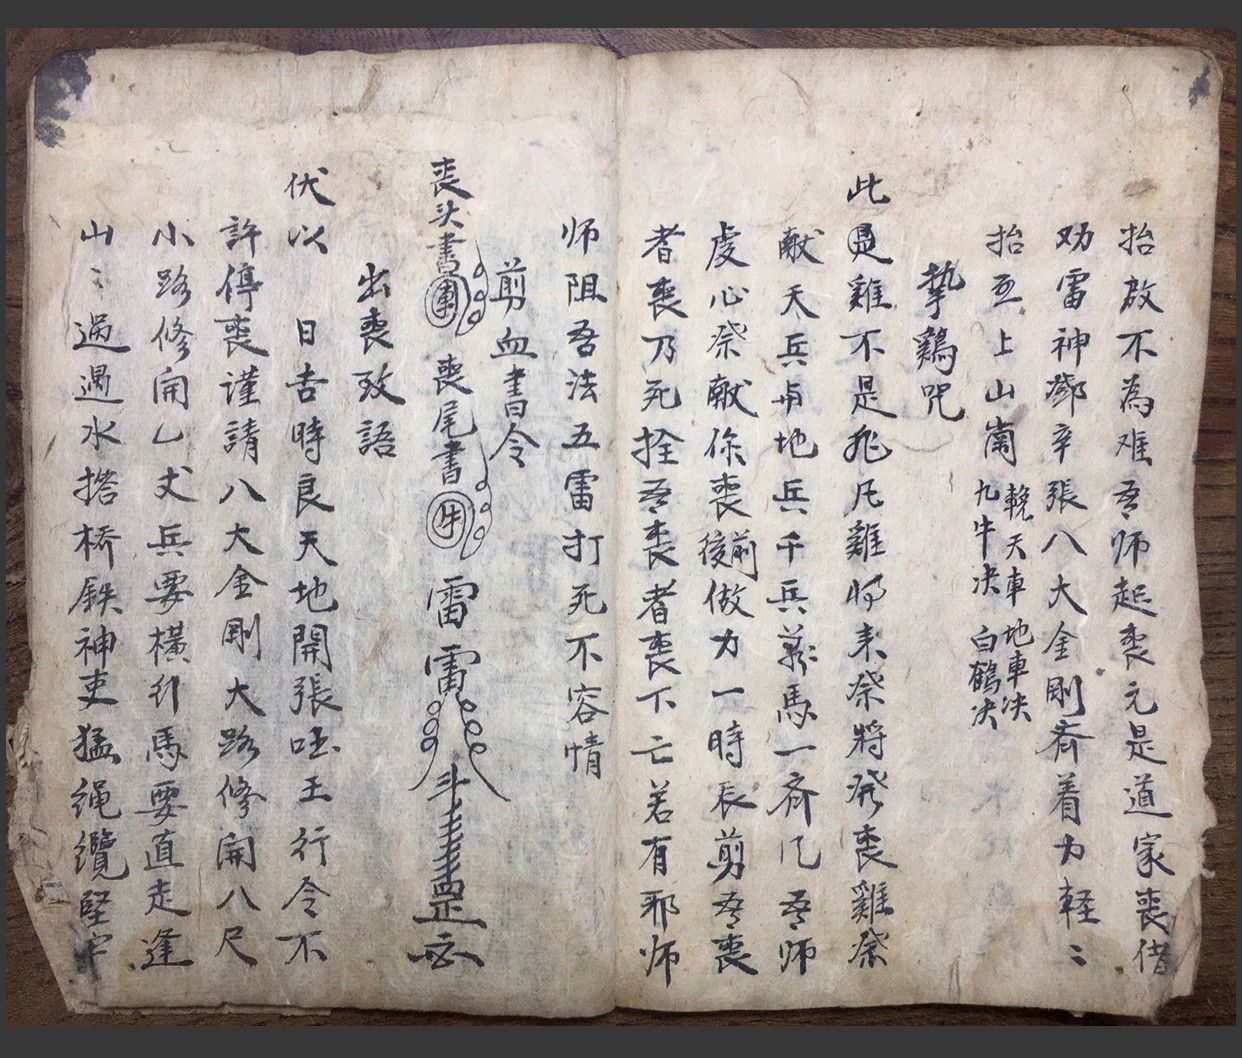 抬啟不為难吾师起丧元是道家丧借
劝雷神鄧辛張八大金剛齐着力軽〻
抬至上山崗 輓天車 地車决
九牛决 白鶴决
摯鷄咒
此是雞不是非凡雞将来祭將發丧雞祭
献天兵与地兵千兵萬馬一齐凡吾师
虔心祭献你丧前後做力一時辰剪吾丧
者丧乃死拴吾丧者丧下亡若有邪师
师阻吾法五雷打死不容情
剪血書令
丧头書 丧尾書 牛 雷雷 斗 罡
出丧致語
伏以 日吉時良天地開張 王行令不
許停丧謹請八大金剛大路修開八尺
小路修開乙丈兵要橫行馬要直走逢
山〻過遇水搭桥鉄神吏猛绳纜堅牢